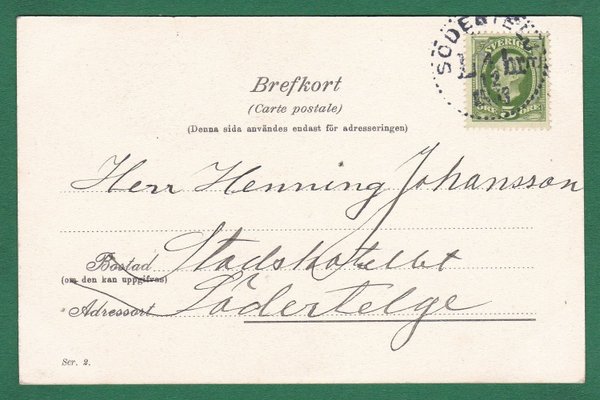 SÖDERTE
SVERIGE
Brefkort
(Carte postale)
(Denna sida användes endast för adresseringen)
Herr Henning Johansson
Bostad Stadshotellet
(om den kan uppgifvas)
Adressort Södertelge
Ser. 2.